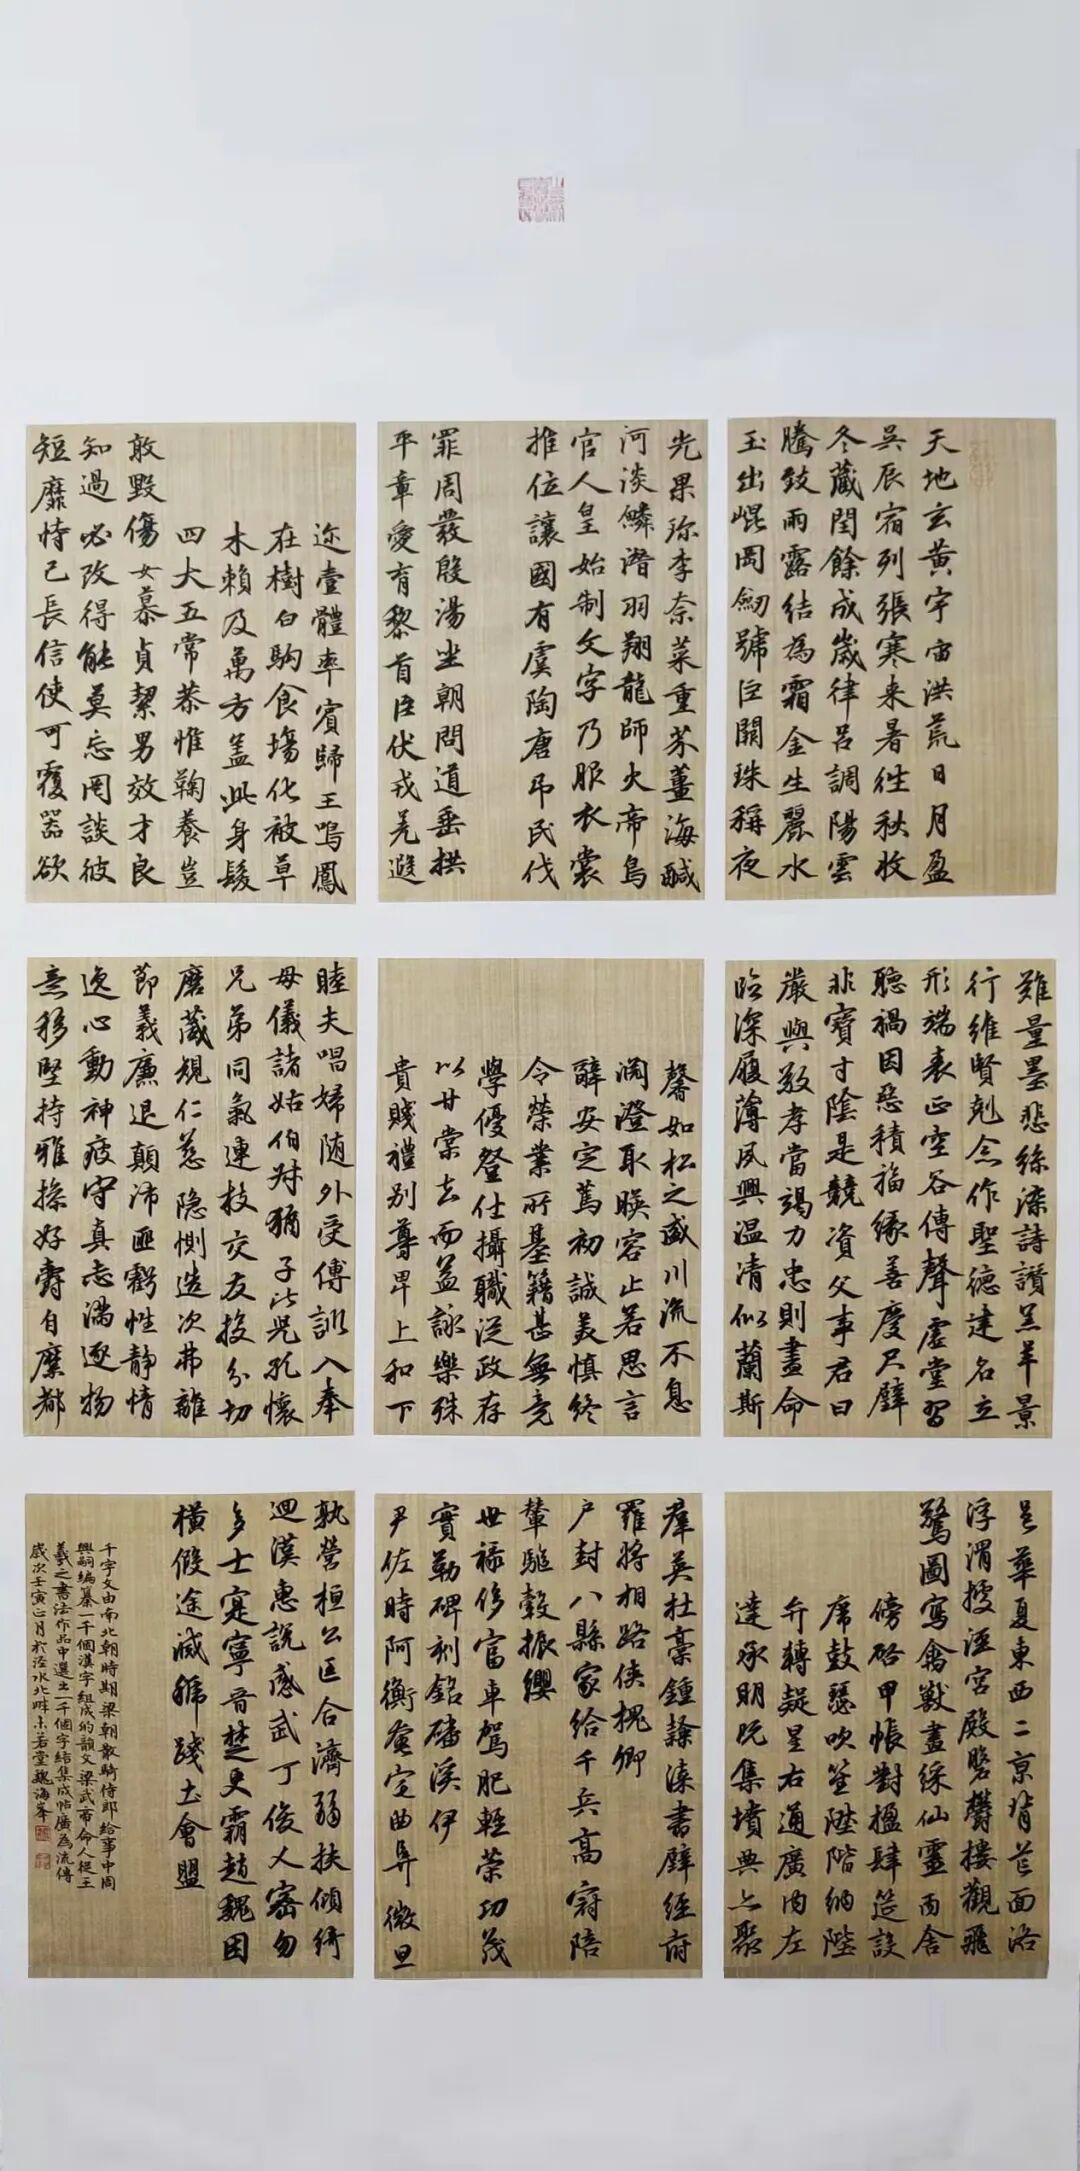 天地玄黄宇宙洪荒日月盈
昃辰宿列張寒来暑往秋收
冬藏閏餘成歲律呂調陽雲
騰致雨露結為霜金生麗水
玉出崐岡劒號巨闕珠稱夜
光果珎李奈菜重芥薑海醎
河淡鱗潛羽翔龍師火帝鳥
官人皇始制文字乃服衣裳
推位讓國有虞陶唐弔民伐
罪周發殷湯坐朝問道垂拱
平章愛有黎首臣伏戎羌遐
迩壹體率賓歸王鳴鳳
在樹白駒食場化被草
木賴及萬方盖此身髮
四大五常恭惟鞠養豈
敢毀傷女慕貞絜男效才良
知過必改得能莫忘罔談彼
短靡恃己長信使可覆器欲
難量墨悲絲染詩讃羔羊景
行維賢剋念作聖德建名立
形端表正空谷傳聲虛堂習
聽禍因惡積福緣善慶尺璧
非寶寸陰是競資父事君曰
嚴與敬孝當竭力忠則盡命
臨深履薄夙興温清似蘭斯
馨如松之盛川流不息
淵澄取暎容止若思言
辭安定篤初誠美慎終
令榮業所基籍甚無竟
學優登仕攝職從政存
以甘棠去而益詠樂殊
貴賤禮别尊卑上和下
睦夫唱婦随外受傅訓入奉
母儀諸姑伯叔猶子比兒孔懷
兄弟同氣連枝交友投分切
磨箴規仁慈隐惻造次弗離
節義廉退顛沛匪虧性静情
逸心動神疲守真志满逐物
意移堅持雅操好爵自縻都
邑華夏東西二京背芒面洛
浮渭據涇宮殿盤欝樓觀飛
驚圖寫禽獸畫綵仙靈丙舍
傍啓甲帳對楹肆筵設
席鼓瑟吹笙陞階納陛
弁轉疑星右通廣内左
達承明既集墳典亦聚
羣英杜稾鍾隸漆書壁經府
羅將相路俠槐卿
户封八縣家給千兵高冠陪
輦驅轂振纓
世禄侈富車駕肥輕策功茂
實勒碑刻銘磻溪伊
尹佐時阿衡奄宅曲阜微旦
孰營桓公匡合濟弱扶傾綺
迴漢惠說感武丁俊乂密勿
多士寔寧晉楚更霸趙魏困
橫假途滅虢踐土會盟
千字文由南北朝時期梁朝散騎侍郎給事中周
興嗣編纂一千個漢字組成的韻文梁武帝命人從王
羲之書法作品中選出一千個字結集成帖廣為流傳
歲次壬寅正月於涇水北畔未若堂魏海峯